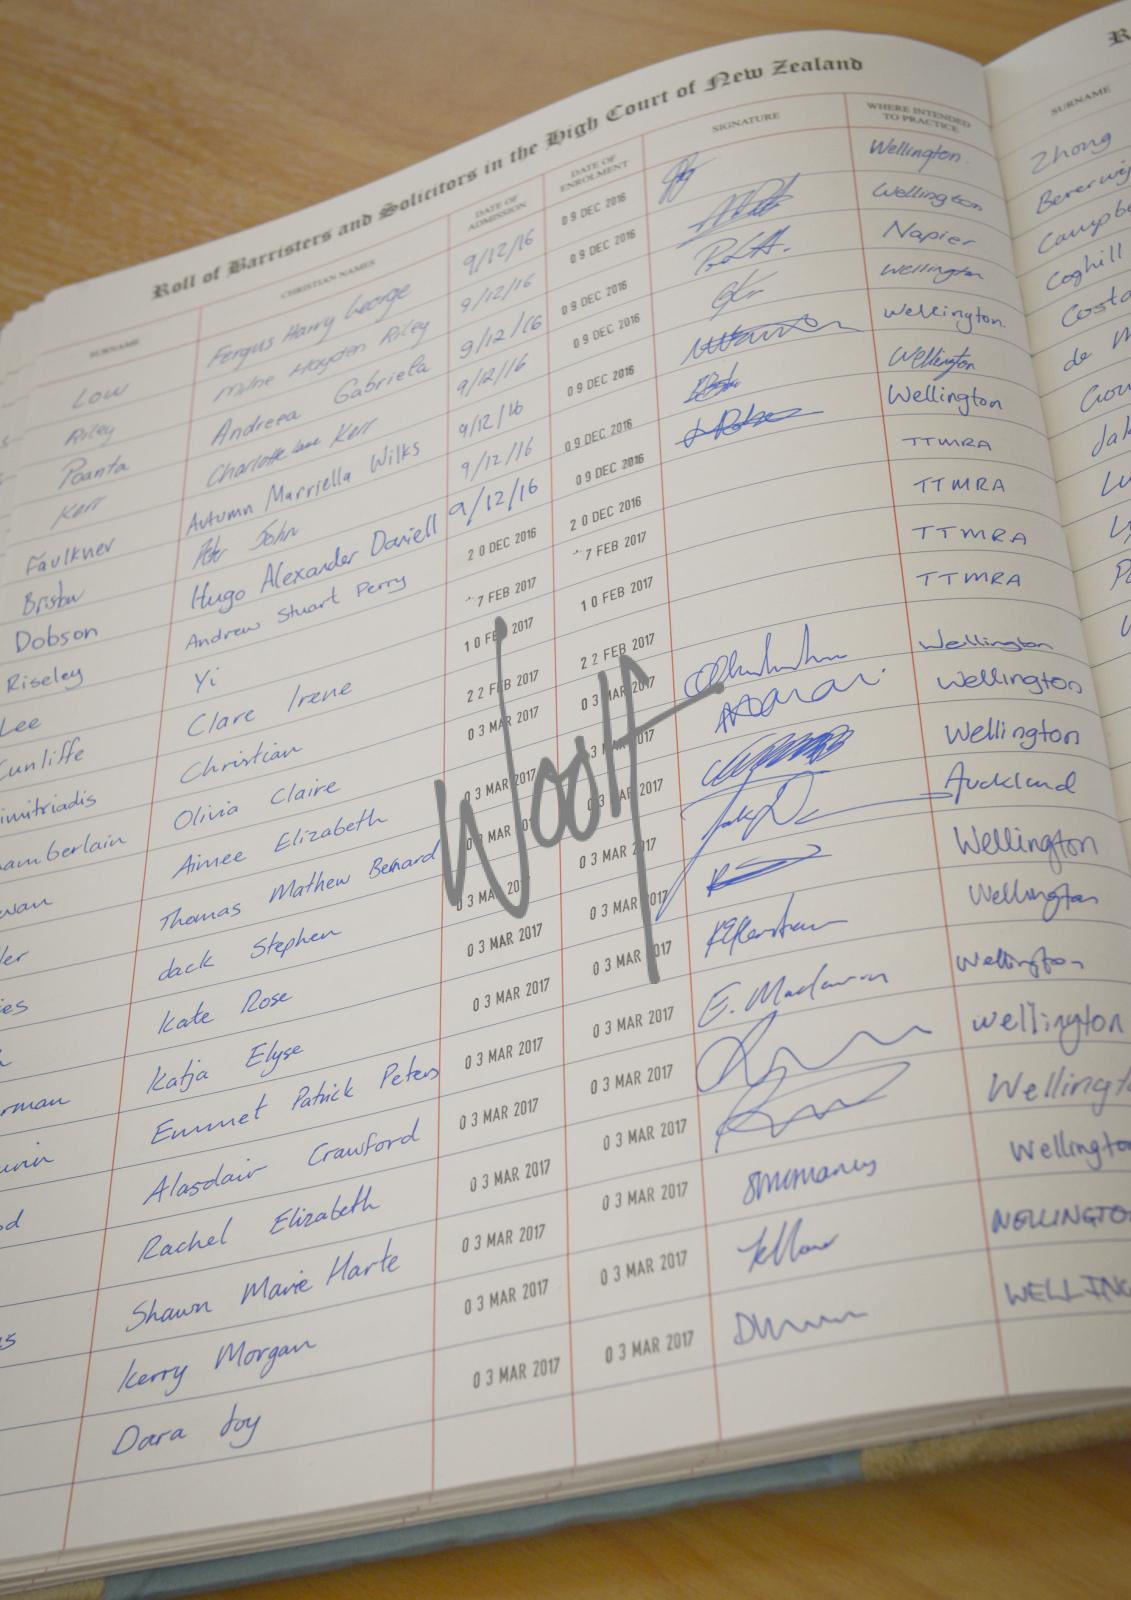 Roll of Barristers and Solicitors in the High Court of New Zealand
SURNAME CHRISTIAN NAMES DATE OF ADMISSION DATE OF ENROLMENT SIGNATURE WHERE INTENDED TO PRACTICE
Low Fergus Harry George 9/12/16 09 DEC 2016 Wellington.
Riley Milne Hayden Riley 9/12/16 09 DEC 2016 Wellington
Poanta Andreea Gabriela 9/12/16 09 DEC 2016 Napier
Kerr Charlotte Kerr 9/12/16 09 DEC 2016 Wellington
Faulkner Autumn Marriella Wilks 9/12/16 09 DEC 2016 Wellington.
Bristow Peter John 9/12/16 09 DEC 2016 Wellington
Dobson Hugo Alexander Daniell 9/12/16 09 DEC 2016 Wellington
Riseley Andrew Stuart Perry 20 DEC 2016 20 DEC 2016 TTMRA
Lee Yi 7 FEB 2017 7 FEB 2017 TTMRA
Cunliffe Clare Irene 10 FEB 2017 10 FEB 2017 TTMRA
imitriadis Christian 22 FEB 2017 22 FEB 2017 TTMRA
amberlain Olivia Claire 03 MAR 2017 03 MAR 2017 Wellington
wan Aimee Elizabeth 03 MAR 2017 03 MAR 2017 Wellington
ler Thomas Mathew Bernard 03 MAR 2017 03 MAR 2017 Wellington
ies Jack Stephen 03 MAR 2017 03 MAR 2017 Auckland
Kate Rose 03 MAR 2017 03 MAR 2017 Wellington
rman Katja Elyse 03 MAR 2017 03 MAR 2017 Wellington
urin Emmet Patrick Peters 03 MAR 2017 03 MAR 2017 E. Maclaurin Wellington
od Alasdair Crawford 03 MAR 2017 03 MAR 2017 Wellington
Rachel Elizabeth 03 MAR 2017 03 MAR 2017 Wellingt
Shawn Marie Harte 03 MAR 2017 03 MAR 2017 Smcmanus Wellington
Kerry Morgan 03 MAR 2017 03 MAR 2017 WELLINGTO
Dara Joy 03 MAR 2017 03 MAR 2017 WELLING
Woolf
SURNAME
Zhong
Campbe
Coghill
Costa
de M